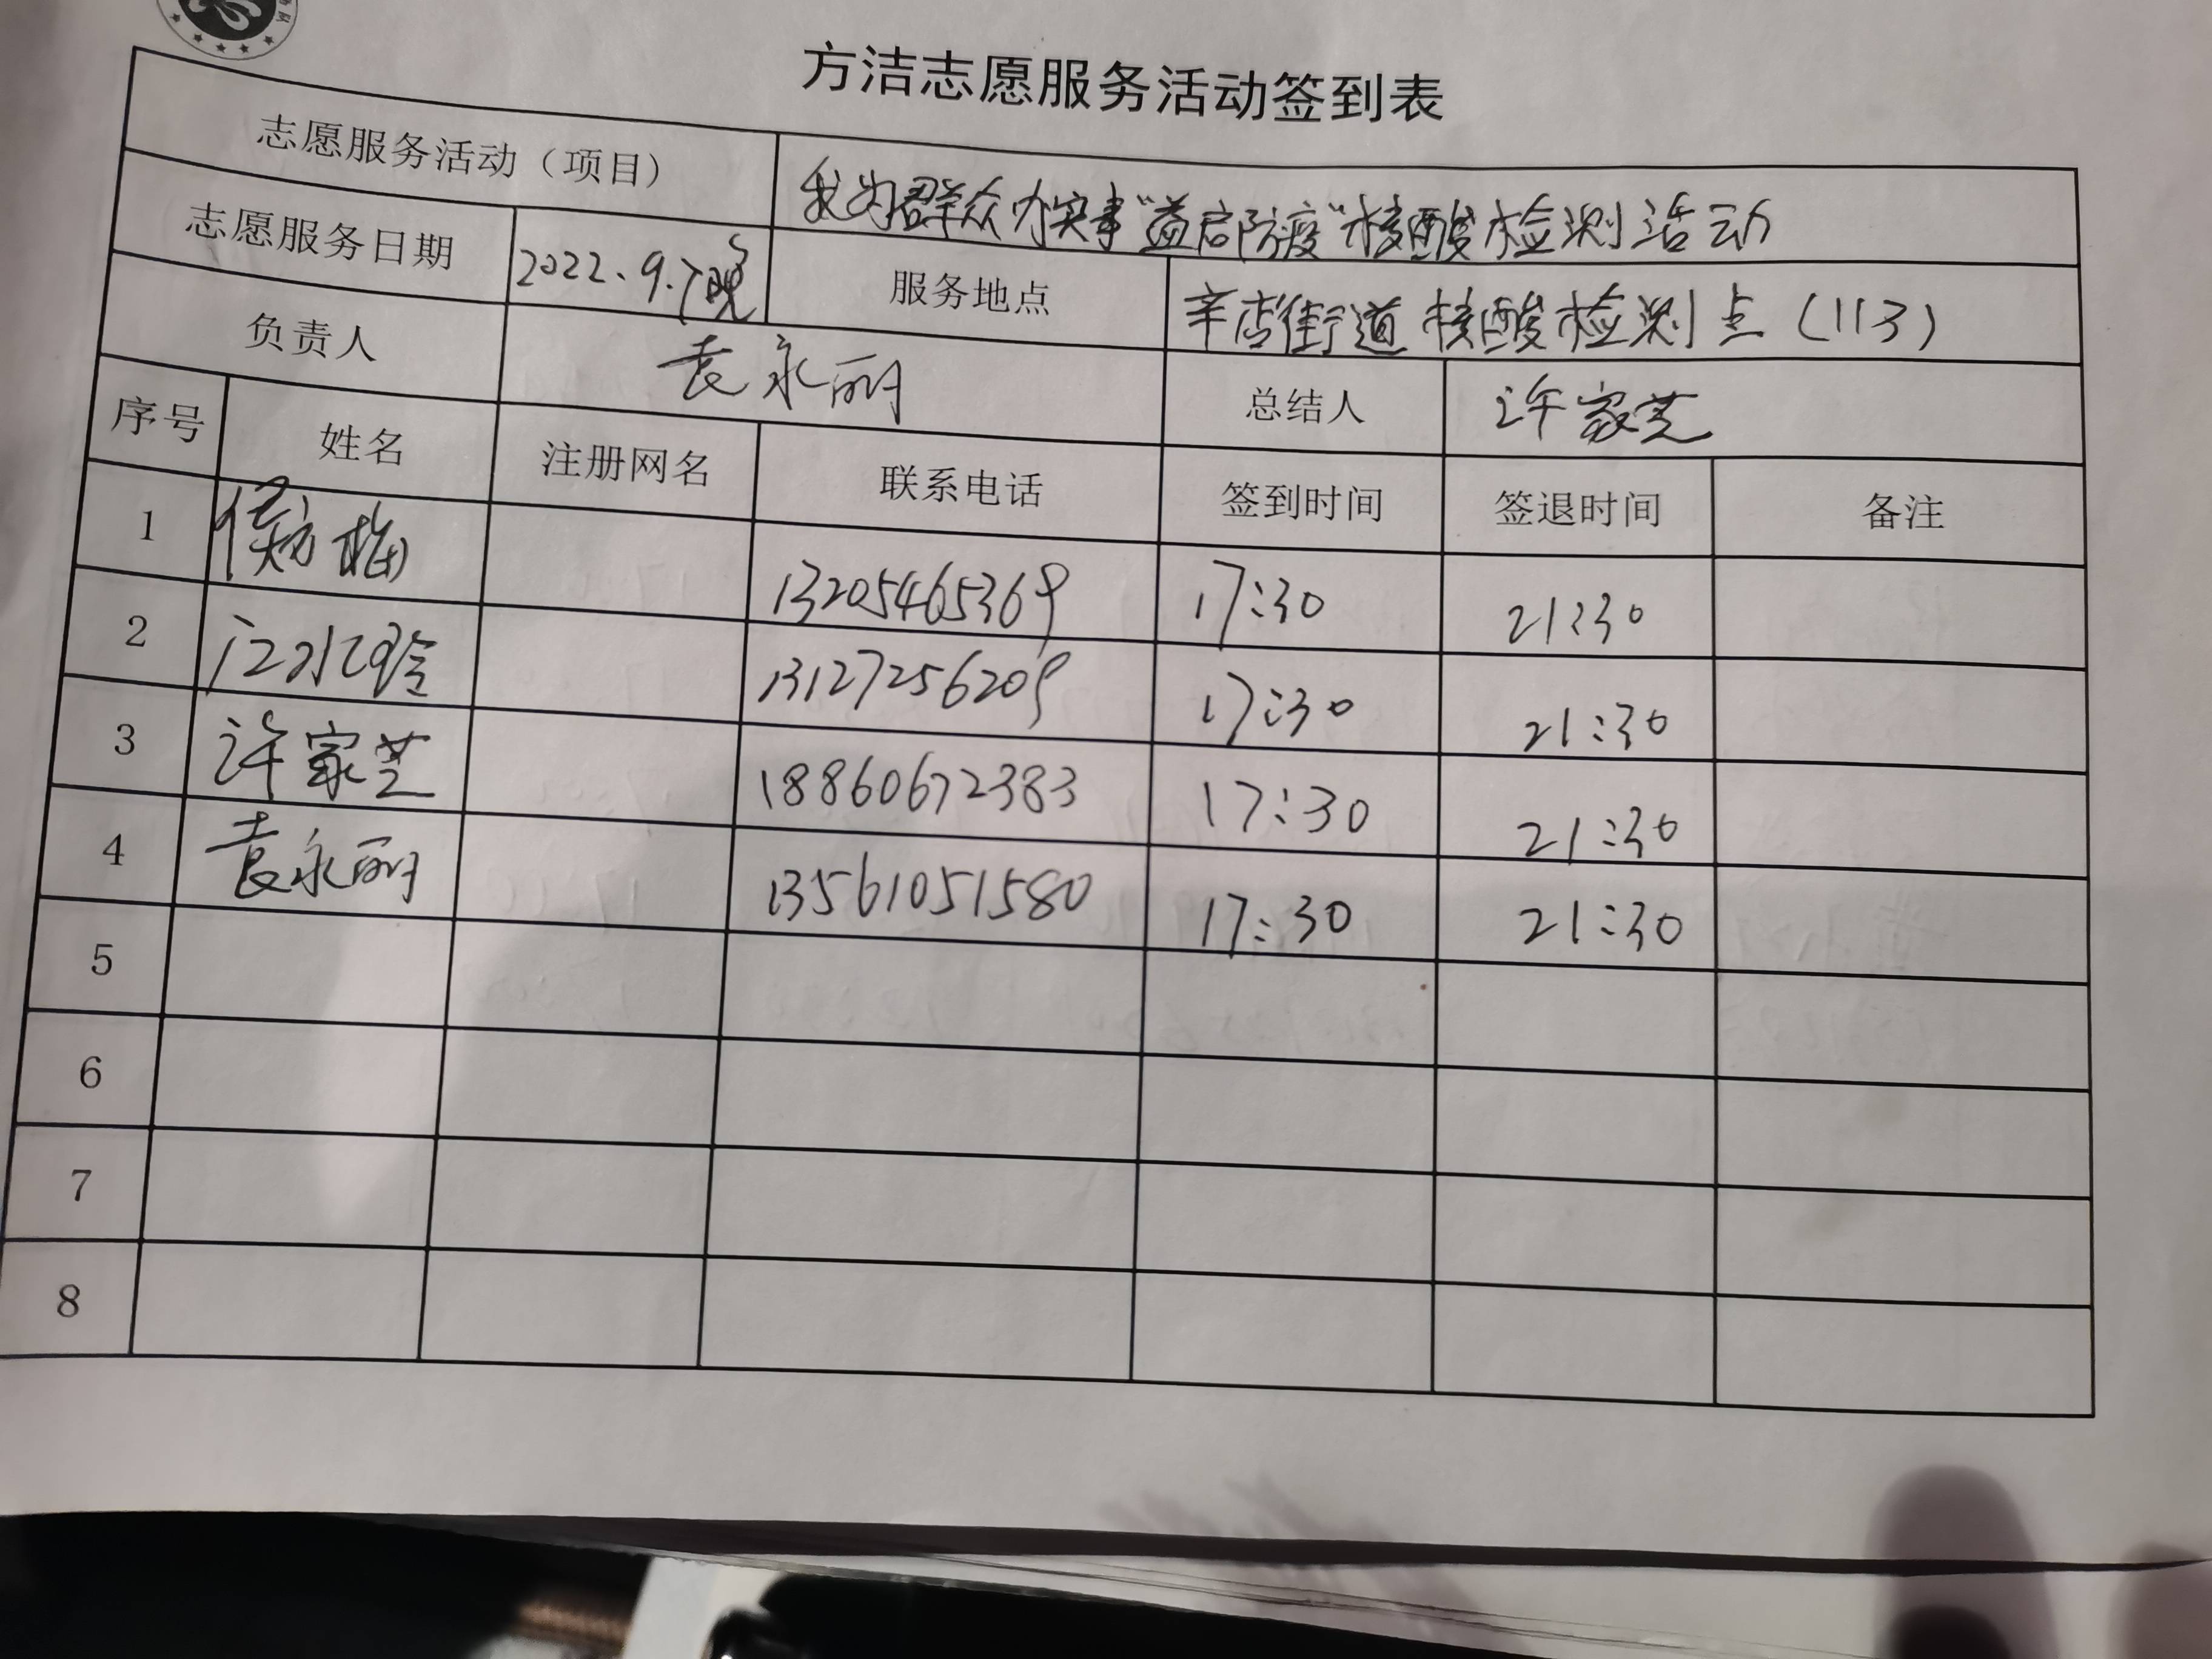 方洁志愿服务活动签到表
志愿服务活动（项目） 我为群众办实事“益启防疫”核酸检测活动
志愿服务日期 2022.9.7晚 服务地点 辛店街道核酸检测点（113）
负责人 袁永丽 总结人 许家芝
序号 姓名 注册网名 联系电话 签到时间 签退时间 备注
1 侯芳梅 13205465369 17:30 21:30
2 13127256209 17:30 21:30
3 许家芝 18860672383 17:30 21:30
4 袁永丽 13561051580 17:30 21:30
5
6
7
8